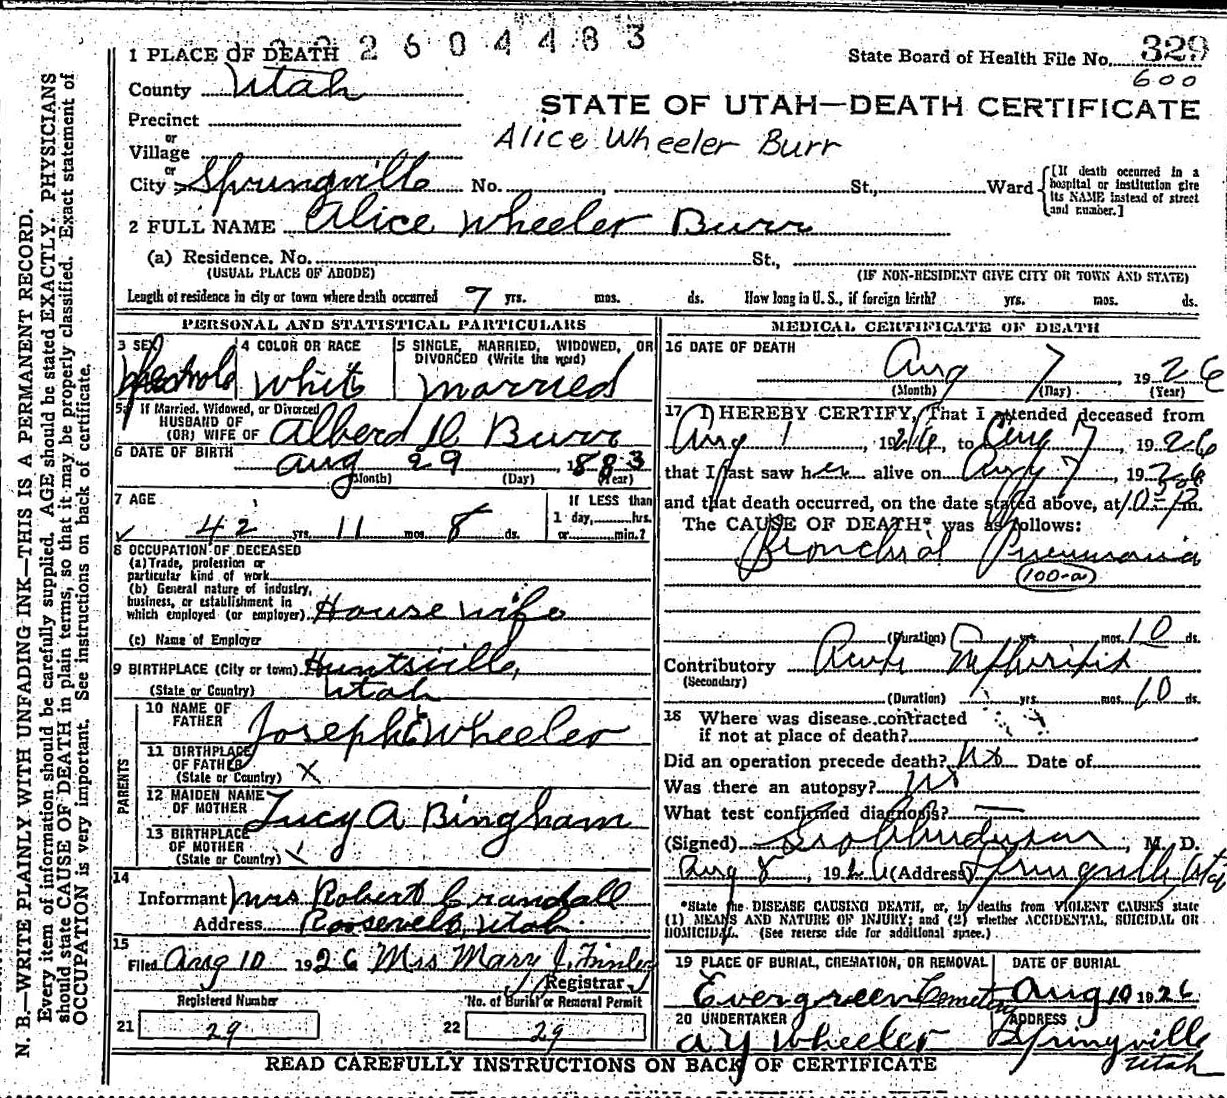 2604483
1 PLACE OF DEATH
State Board of Health File No. 329
600
County Utah
STATE OF UTAH—DEATH CERTIFICATE
Precinct
or
Alice Wheeler Burr
Village
or
City Springville No. , St., Ward
[If death occurred in a hospital or institution give its NAME instead of street and number.]
2 FULL NAME Alice Wheeler Burr
(a) Residence. No. St.,
(USUAL PLACE OF ABODE) (IF NON-RESIDENT GIVE CITY OR TOWN AND STATE)
Length of residence in city or town where death occurred 7 yrs. mos. ds. How long in U. S., if foreign birth? yrs. mos. ds.
PERSONAL AND STATISTICAL PARTICULARS
3 SEX 4 COLOR OR RACE 5 SINGLE, MARRIED, WIDOWED, OR
DIVORCED (Write the word)
White married
5a If Married, Widowed, or Divorced
HUSBAND OF
(OR) WIFE OF Albert D Burr
6 DATE OF BIRTH Aug 29, 1883
(Month) (Day) (Year)
7 AGE If LESS than
1 day, hrs.
42 yrs. 11 mos. 8 ds. or min.?
8 OCCUPATION OF DECEASED
(a) Trade, profession or
particular kind of work
(b) General nature of industry,
business, or establishment in
which employed (or employer) House wife
(c) Name of Employer
9 BIRTHPLACE (City or town) Huntsville,
(State or Country) Utah
PARENTS
10 NAME OF
FATHER Joseph Wheeler
11 BIRTHPLACE
OF FATHER
(State or Country) X
12 MAIDEN NAME
OF MOTHER Lucy A Bingham
13 BIRTHPLACE
OF MOTHER
(State or Country) X
14
Informant Mrs Robert Crandall
Address Roosevelt, Utah.
15
Filed Aug 10 1926 Mrs Mary J. Finley
Registrar
Registered Number No. of Burial or Removal Permit
21 29 22 29
MEDICAL CERTIFICATE OF DEATH
16 DATE OF DEATH
Aug 7, 1926
(Month) (Day) (Year)
17 I HEREBY CERTIFY, That I attended deceased from
Aug 1, 1926, to Aug 7, 1926
that I last saw her alive on Aug 7, 1926
and that death occurred, on the date stated above, at 10 P m.
The CAUSE OF DEATH* was as follows:
Bronchial Pneumonia
(100-a)
(Duration) yrs. mos. 10 ds.
Contributory Acute Nephritis
(Secondary)
(Duration) yrs. mos. 10 ds.
18 Where was disease contracted
if not at place of death?
Did an operation precede death? No Date of
Was there an autopsy? No
What test confirmed diagnosis? —
(Signed) , M. D.
Aug 8, 1926 (Address) Springville Utah
*State the DISEASE CAUSING DEATH, or, in deaths from VIOLENT CAUSES, state
(1) MEANS AND NATURE OF INJURY; and (2) whether ACCIDENTAL, SUICIDAL OR
HOMICIDAL. (See reverse side for additional space.)
19 PLACE OF BURIAL, CREMATION, OR REMOVAL DATE OF BURIAL
Evergreen Cemetery Aug 10 1926
20 UNDERTAKER ADDRESS
A Y Wheeler Springville
Utah
READ CAREFULLY INSTRUCTIONS ON BACK OF CERTIFICATE
N. B.—WRITE PLAINLY WITH UNFADING INK—THIS IS A PERMANENT RECORD.
Every item of information should be carefully supplied. AGE should be stated EXACTLY. PHYSICIANS
should state CAUSE OF DEATH in plain terms, so that it may be properly classified. Exact statement of
OCCUPATION is very important. See instructions on back of certificate.